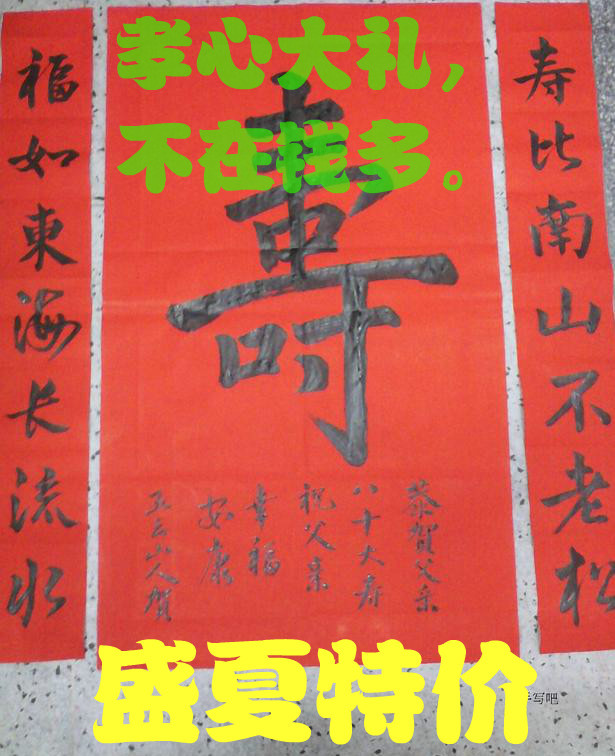 孝心大礼，
不在钱多。
壽
寿比南山不老松
福如東海长流水
恭賀父亲
八十大寿
祝父亲
幸福
安康
五云山人贺
盛夏特价
手写吧